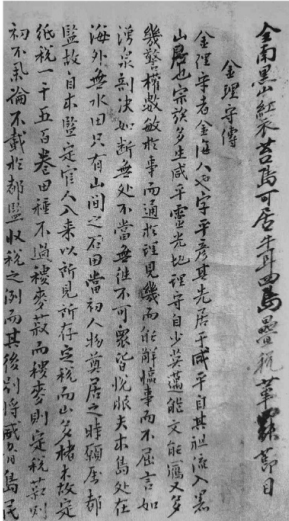 全南黑山紅衣苔島可居牛耳四島疊稅革弊節目
金理守傳
金理守者金海人也字平彦其先居于咸平自其祖流入黑
山居也宗族多生咸平靈光地理守自少英邁能文能寫又多
幾警權數敏於事而通於理見幾而能辭據事而不屈言如
湧泉剖決如斷無處不當無徃不可衆皆悅服夫本島處在
海外無水田只有山間之石田當初人物奠居之時願屬都
監故自本監定官人入来以所見所存定税而山多楮木故定
紙税一千五百卷田種不過稷麥菽而稷麥則定税菽則
初不氣論不載於都監收税之例而其後別將咸曰島民